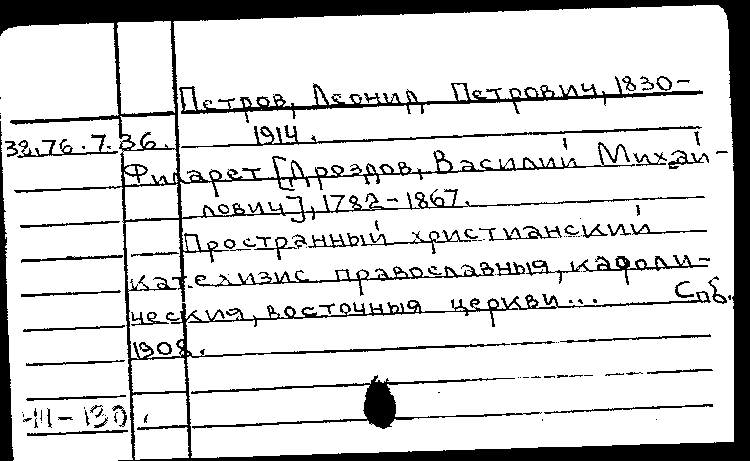 Петров, Леонид Петрович, 1830-
38.76.7.36. 1914.
Филарет [Дроздов, Василий Михай-
лович], 1782-1867.
Пространный христианский
катехизис православныя, кафоли-
ческия, восточныя церкви... Спб.,
1908.
-130.